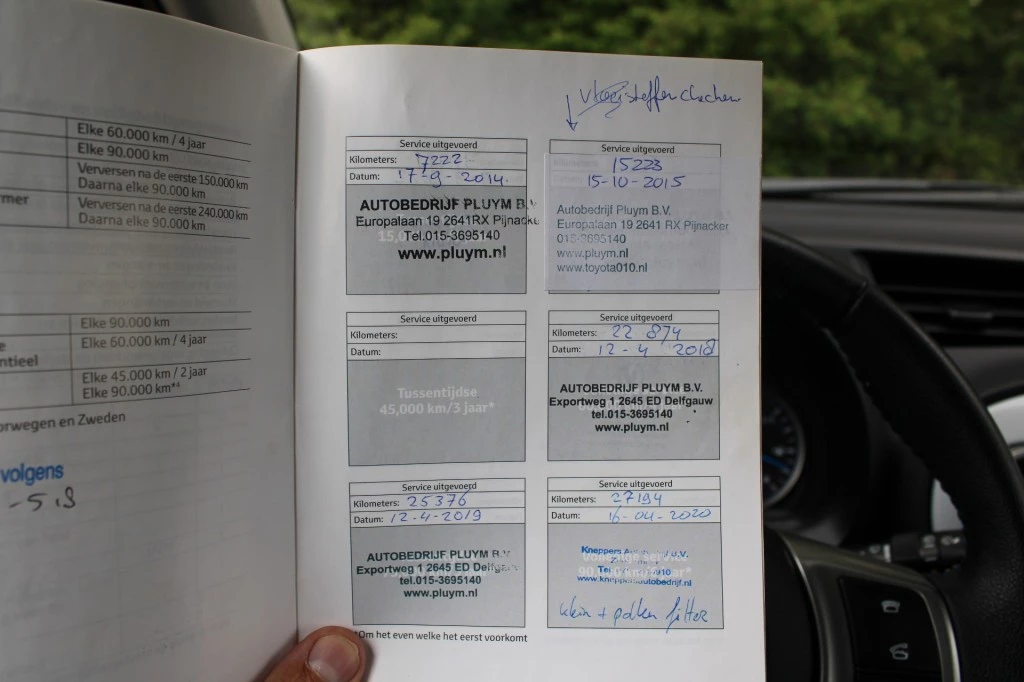 Elke 60.000 km / 4 jaar
Elke 90.000 km
Verversen na de eerste 150.000 km
Daarna elke 90.000 km
mer
Verversen na de eerste 240.000 km
Daarna elke 90.000 km
Elke 90.000 km
e
ntieel
Elke 60.000 km / 4 jaar
Elke 45.000 km / 2 jaar
Elke 90.000 km*⁴
orwegen en Zweden
volgens
checken
Service uitgevoerd
Kilometers: 7222
Datum: 17-9-2014
AUTOBEDRIJF PLUYM B.V.
Europalaan 19 2641RX Pijnacke
Tel.015-3695140
www.pluym.nl
Service uitgevoerd
15223
15-10-2015
Autobedrijf Pluym B.V.
Europalaan 19 2641 RX Pijnacker
015-3695140
www.pluym.nl
www.toyota010.nl
Service uitgevoerd
Kilometers:
Datum:
Tussentijdse
45,000 km/3 jaar*
Service uitgevoerd
Kilometers: 22 874
Datum: 12-4 2018
AUTOBEDRIJF PLUYM B.V.
Exportweg 1 2645 ED Delfgauw
tel.015-3695140
www.pluym.nl
Service uitgevoerd
Kilometers: 25376
Datum: 12-4-2019
AUTOBEDRIJF PLUYM B.V.
Exportweg 1 2645 ED Delfgauw
tel.015-3695140
www.pluym.nl
Service uitgevoerd
Kilometers: 27194
Datum: 16-04-2020
Kneppers
www.kneppersautobedrijf.nl
klein + pollen filter
*Om het even welke het eerst voorkomt